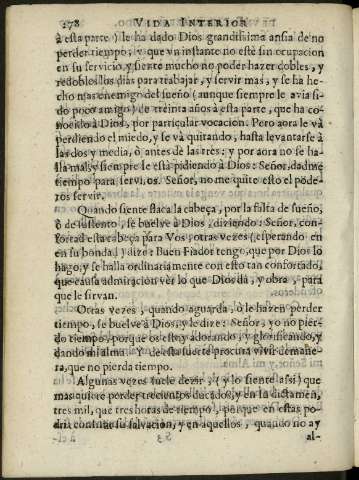 278 VIDA INTERIOR
à esta parte) le ha dado Dios grandissima ansia de no
perder tiempo, y que vn instante no estè sin ocupacion
en su servicio, y siente mucho no poder hazer dobles, y
redoblos los dias para trabajar, y servir mas, y se ha he-
cho mas enemigo del sueño (aunque siempre le avia si-
do poco amigo) de treinta años à esta parte, que ha co-
nocido à Dios, por particular vocacion. Pero aora le và
perdiendo el miedo, y se và quitando, hasta levantarse à
las dos y media, ò antes de las tres; y por aora no se ha-
lla mal, y siempre le està pidiendo à Dios: Señor, dadme
tiempo para serviros. Señor, no me quite esto el pode-
ros servir.
Quando siente flaca la cabeça, por la falta de sueño,
ò de sustento, se buelve à Dios, diziendo: Señor, con-
fortad esta cabeça para Vos; otras vezes (esperando en
en su bondad) dize: Buen Fiador tengo, que por Dios lo
hago, y se halla ordinariamente con esto tan confortado,
que causa admiracion ver lo que Dios dà, y obra, para
que le sirvan.
Otras vezes, quando aguarda, ò le hazen perder
tiempo, se buelve à Dios, y le dize: Señor, yo no pier-
do tiempo, porque os estoy adorando, y glorificando, y
dando mi alma. Y de esta suerte procura vivir de mane-
ra, que no pierda tiempo.
Algunas vezes suele dezir, (y lo siente assi) que
mas quiere perder trecientos ducados, y en la dictamen,
tres mil, que tres horas de tiempo, porque en estas po-
dria continuar su salvacion, y en aquellos, quando no ay
al-